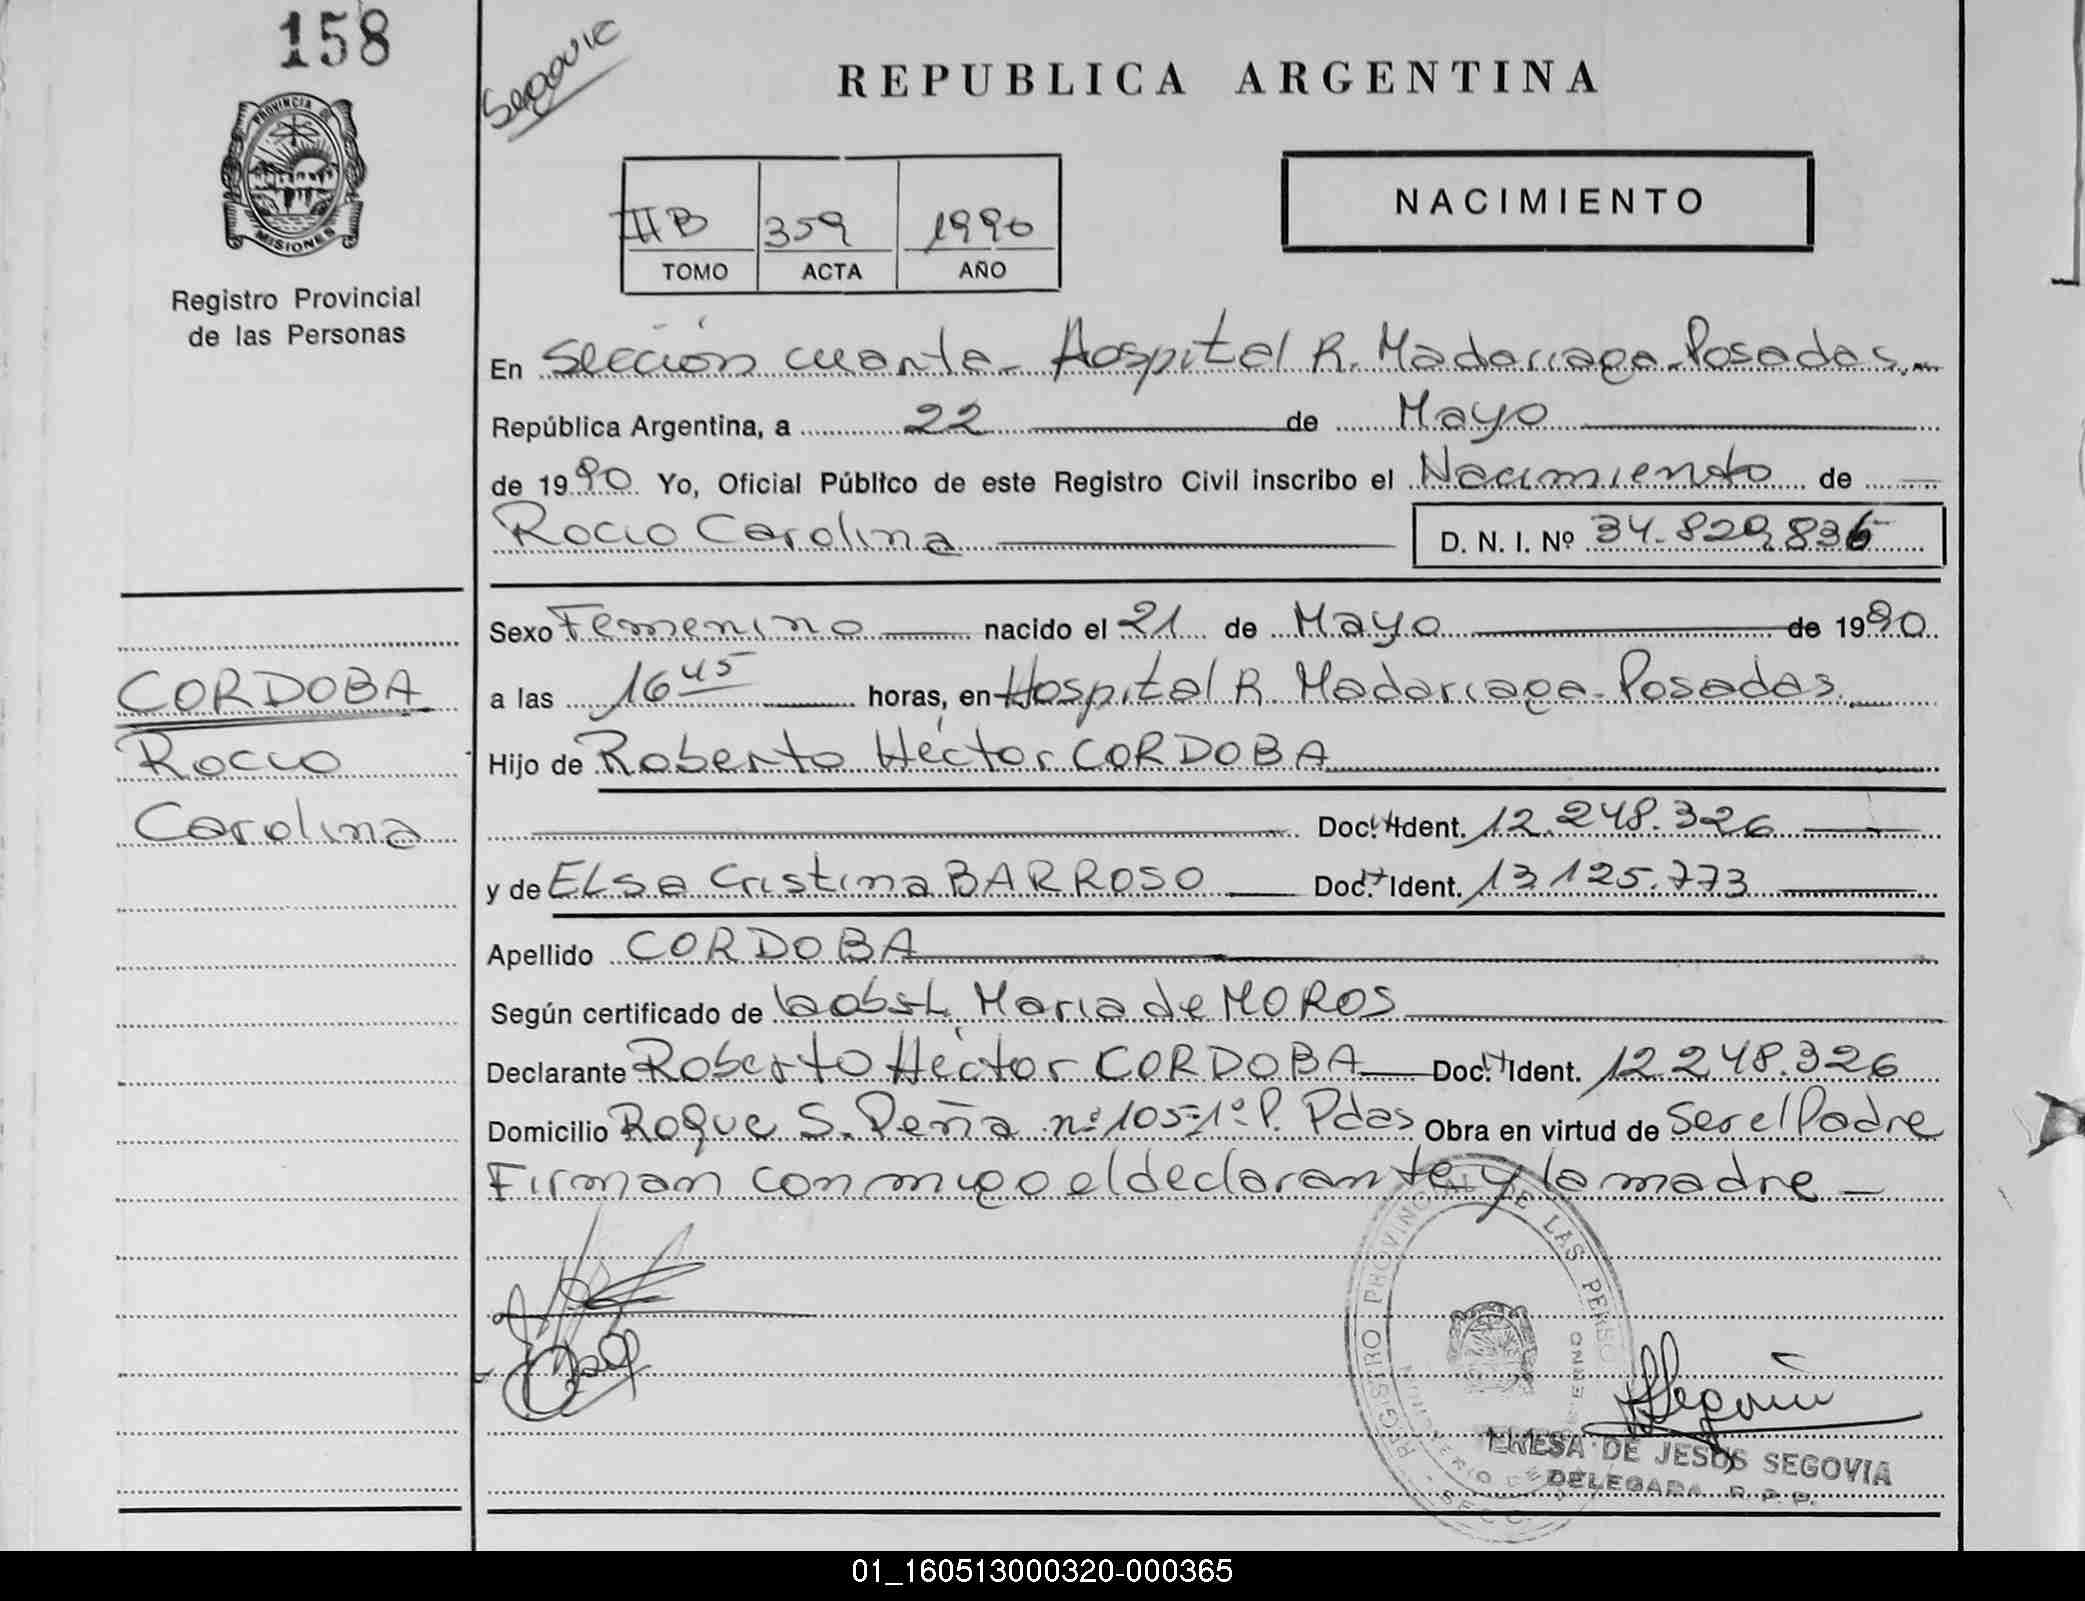 158
Segovia
REPUBLICA ARGENTINA
PROVINCIA
MISIONES
Registro Provincial
de las Personas
NACIMIENTO
IIB 359 1990
TOMO ACTA AÑO
En Sección cuarta - Hospital R. Madariaga - Posadas.-
República Argentina, a 22 de Mayo
de 1990 Yo, Oficial Público de este Registro Civil inscribo el Nacimiento de
Rocio Carolina D. N. I. Nº 34.820.836
Sexo Femenino nacido el 21 de Mayo de 1990
a las 16 45 horas, en Hospital R. Madariaga - Posadas.
Hijo de Roberto Héctor CORDOBA
Doc. Ident. 12.248.326
y de ELsa Cristina BARROSO Doc. Ident. 13.125.773
Apellido CORDOBA
Según certificado de la obst. Maria de MOROS
Declarante Roberto Héctor CORDOBA Doc. Ident. 12.248.326
Domicilio Roque S. Peña nº 105-1º P. Pdas Obra en virtud de Ser el Padre
Firman conmigo el declarante y la madre -
CORDOBA
Rocio
Carolina
REGISTRO PROVINCIAL DE LAS PERSO
Segovia
TERESA DE JESUS SEGOVIA
DELEGADA R.P.P.
01_160513000320-000365